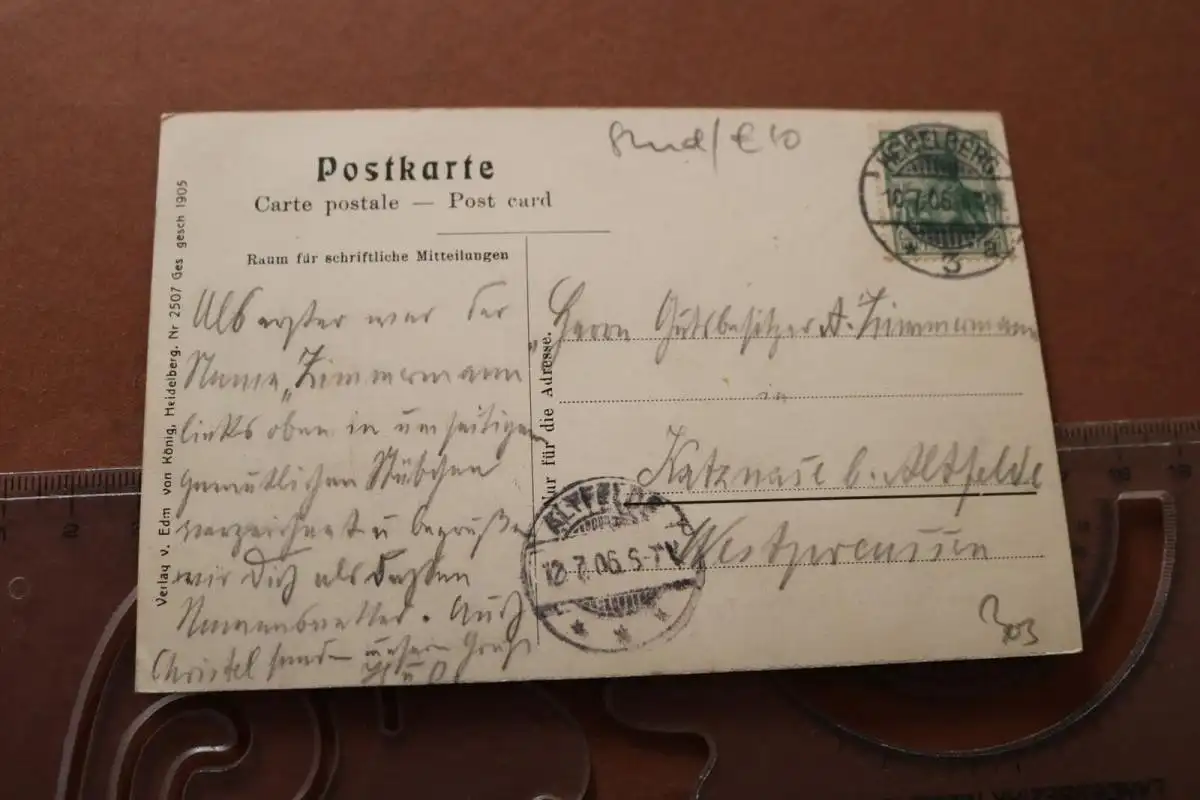 Stud / € 10
Postkarte
Carte postale — Post card
Raum für schriftliche Mitteilungen
Verlag v. Edm von König, Heidelberg. Nr 2507 Ges gesch 1905
Nur für die Adresse.
HEIDELBERG
10.7.06
* 3 a
Als erster war der
Name „Zimmermann"
links oben in umseitigem
gemütlichen Stübchen
verzeichnet u begrüßen
wir Dich als dessen
Namensvetter. Auch
Christel senden unsern Gruß
Herrn Gutsbesitzer A. Zimmermann
in
Katznase b. Altfelde
Westpreussen
ALTFELDE
12.7.06.5-7V
* * *
303